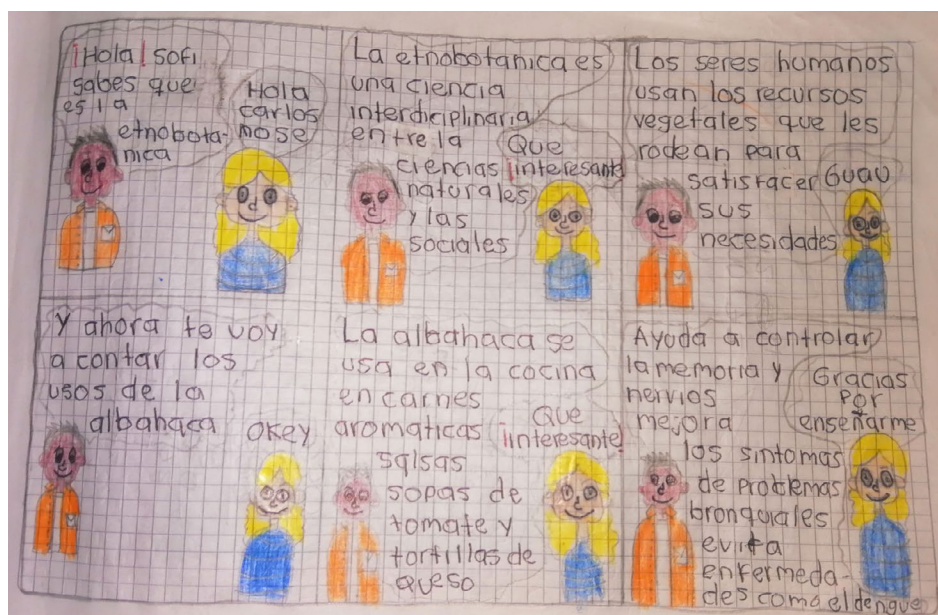 ¡Hola! sofi
sabes que
es la
etnobota-
nica
Hola
carlos
no se
La etnobotanica es
una ciencia
interdiciplinaria
entre la
ciencias
naturales
y las
sociales
Que
¡interesante!
Los seres humanos
usan los recursos
vegetales que les
rodean para
satisfacer
sus
necesidades
Guau
Y ahora te voy
a contar los
usos de la
albahaca
OKey
La albahaca se
usa en la cocina
en carnes
aromaticas
salsas
sopas de
tomate y
tortillas de
queso
Que
¡interesante!
Ayuda a controlar
la memoria y
nervios
mejora
los sintomas
de problemas
bronquiales
evita
enfermeda-
des como el dengue
Gracias
por
enseñarme